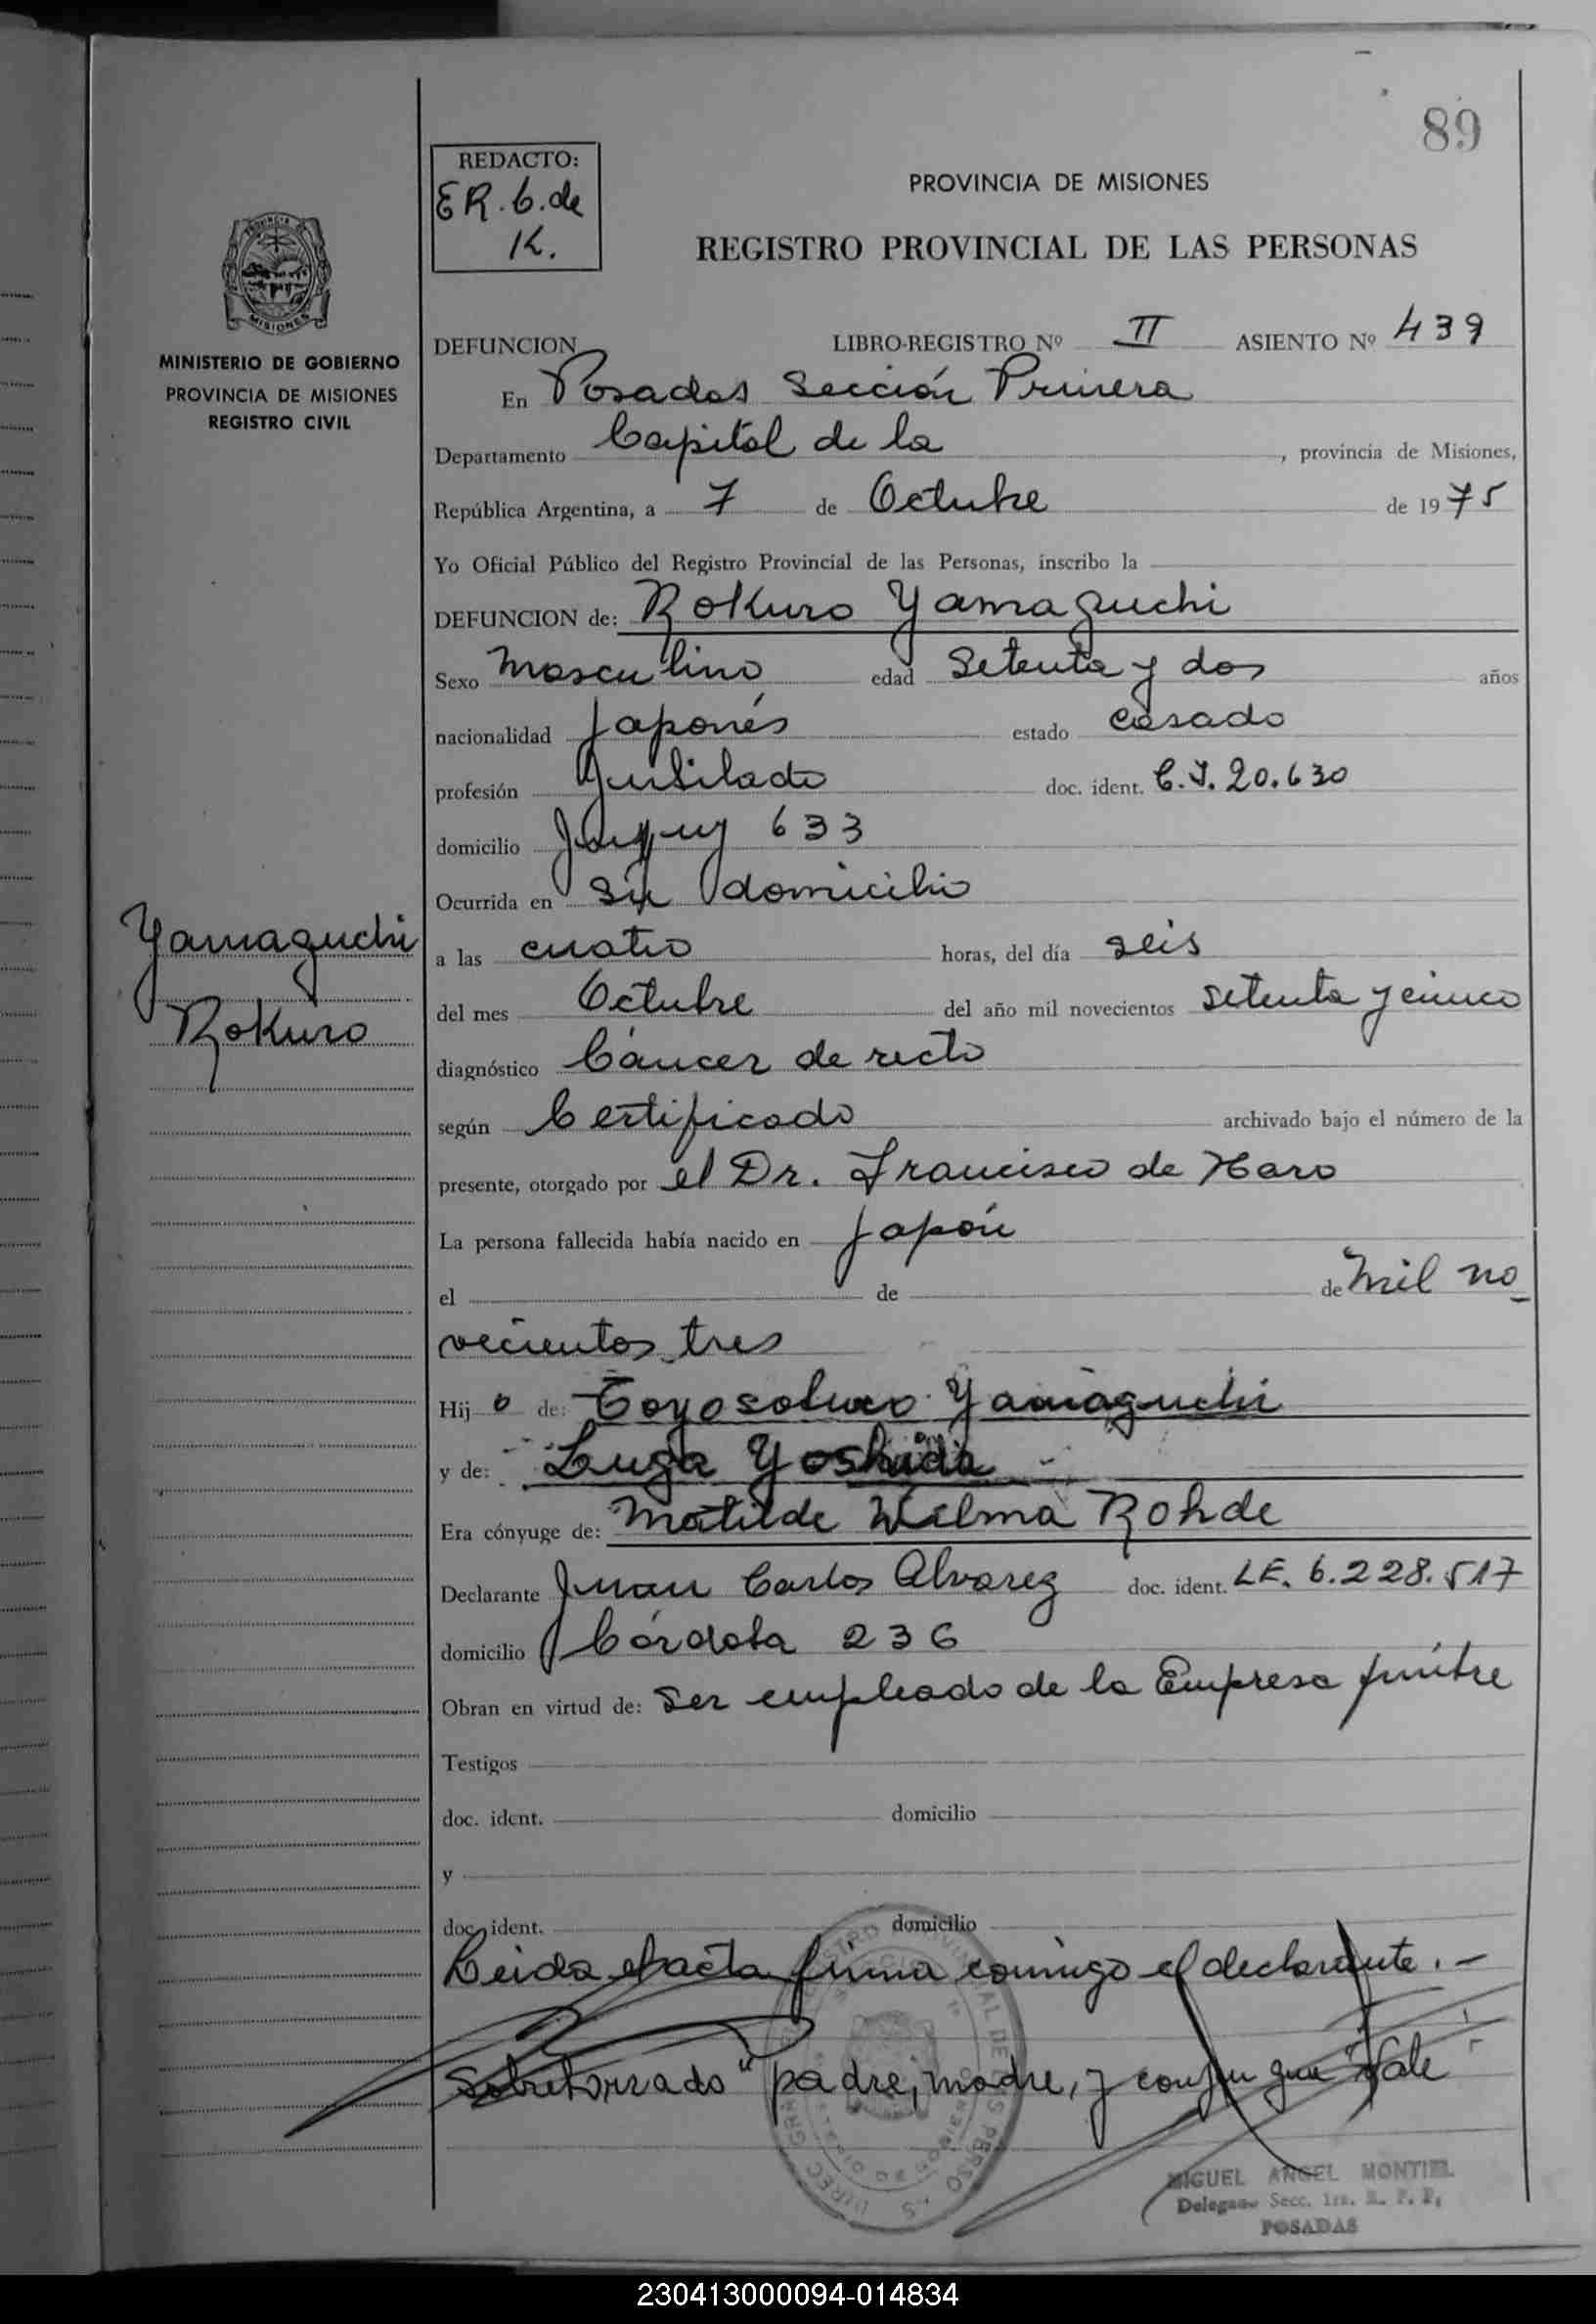 89
REDACTO:
ER. G. de
K.
PROVINCIA DE MISIONES
REGISTRO PROVINCIAL DE LAS PERSONAS
MISIONES
MINISTERIO DE GOBIERNO
PROVINCIA DE MISIONES
REGISTRO CIVIL
DEFUNCION LIBRO-REGISTRO Nº II ASIENTO Nº 439
En Posadas Sección Primera
Departamento Capital de la , provincia de Misiones,
República Argentina, a 7 de Octubre de 1975
Yo Oficial Público del Registro Provincial de las Personas, inscribo la
DEFUNCION de: Rokuro Yamaguchi
Sexo Masculino edad Setenta y dos años
nacionalidad Japonés estado Casado
profesión Jubilado doc. ident. C.I. 20.630
domicilio Jujuy 633
Ocurrida en Su domicilio
Yamaguchi
Rokuro
a las cuatro horas, del día seis
del mes Octubre del año mil novecientos setenta y cinco
diagnóstico Cáncer de recto
según Certificado archivado bajo el número de la
presente, otorgado por el Dr. Francisco de Haro
La persona fallecida había nacido en Japón
el de de Mil no
vecientos tres
Hij o de: Yamaguchi
y de: Yoshida
Era cónyuge de: Matilde Wilma Rohde
Declarante Juan Carlos Alvarez doc. ident. LE. 6.228.517
domicilio Córdoba 236
Obran en virtud de: Ser empleado de la Empresa fúnebre
Testigos
doc. ident. domicilio
y
doc. ident. domicilio
Leida el acta firma conmigo el declarante.-
Sobreborrado "padre, madre, y conyugue" Vale
MIGUEL ANGEL MONTIEL
Delegado Secc. 1ra. R. P. P.
POSADAS
230413000094-014834